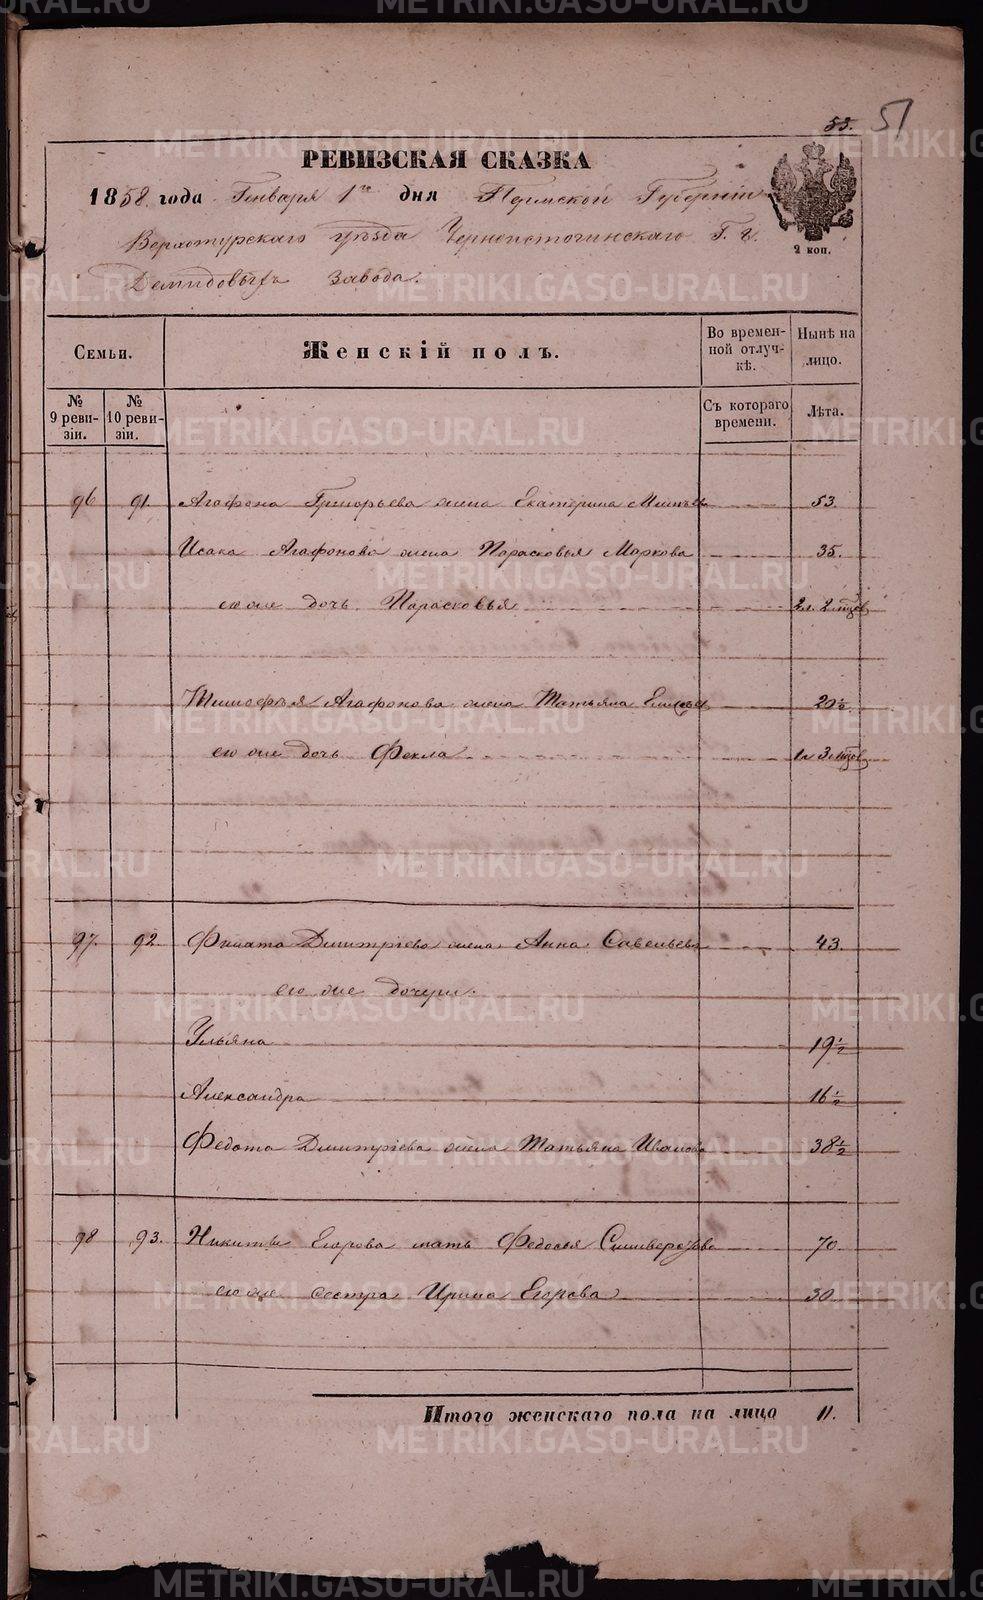 55. 51
РЕВИЗСКАЯ СКАЗКА
1858 года Генваря 1го дня Пермской Губернии
Верхотурскаго уѣзда Черноисточинскаго Г. г.
Демидовыхъ завода.
2 коп.
Семьи.
Женскій полъ.
Во времен-
ной отлуч-
кѣ.
Нынѣ на
лицо.
№
9 реви-
зіи.
№
10 реви-
зіи.
Съ котораго
времени.
Лѣта.
96 91. Агафона Григорьева жена Екатерина 53.
Исака Агафонова жена Парасковья Маркова 35.
его же дочь Парасковья 2л. 2 мѣсов
Тимофѣя Агафонова жена Татьяна 20½
его же дочь Фекла 1л 3 мѣсов
97. 92. Филата Дмитріева жена Анна Савельева 43.
его же дочери.
Ульяна 19½
Александра 16½
Федота Дмитріева жена Татьяна Иванова 38½
98 93. Никиты Егорова мать Федосья Селиверстова 70.
его же сестра Ирина Егорова 30.
Итого женскаго пола на лицо 11.
METRIKI.GASO-URAL.RU